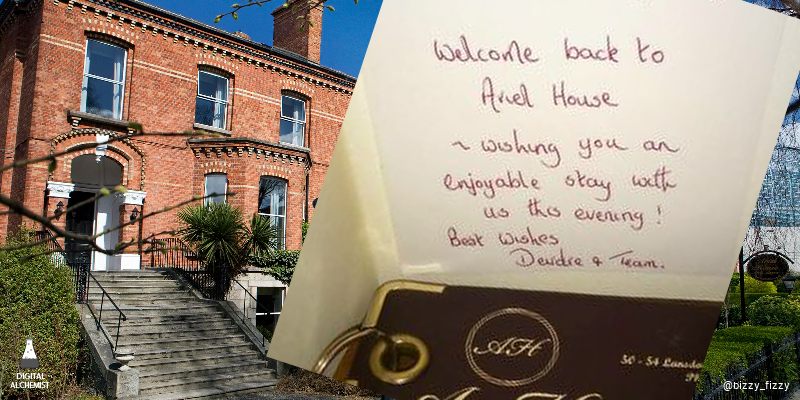 Welcome back to
Ariel House
~ wishing you an
enjoyable stay with
us this evening!
Best Wishes
Deirdre & Team.
AH
50 - 54 Lansdo
DIGITAL
ALCHEMIST
@bizzy_fizzy